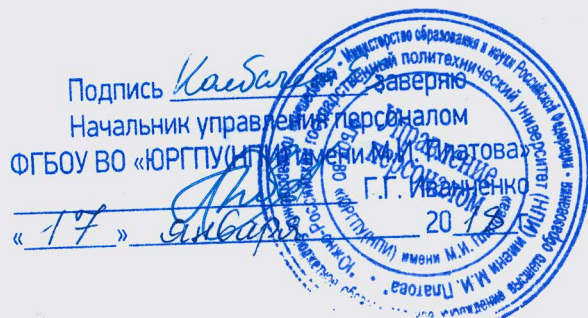 Подпись заверяю
Начальник управления персоналом
ФГБОУ ВО «ЮРГПУ(НПИ) имени М.И. Платова»
Г.Г. Иванченко
« 17 » января 20 18 г.
Министерство образования и науки Российской Федерации
государственный политехнический университет (НПИ) имени М.И. Платова"
"Южно-Российский
ЮРГПУ(НПИ) имени М.И.
Управление
персоналом